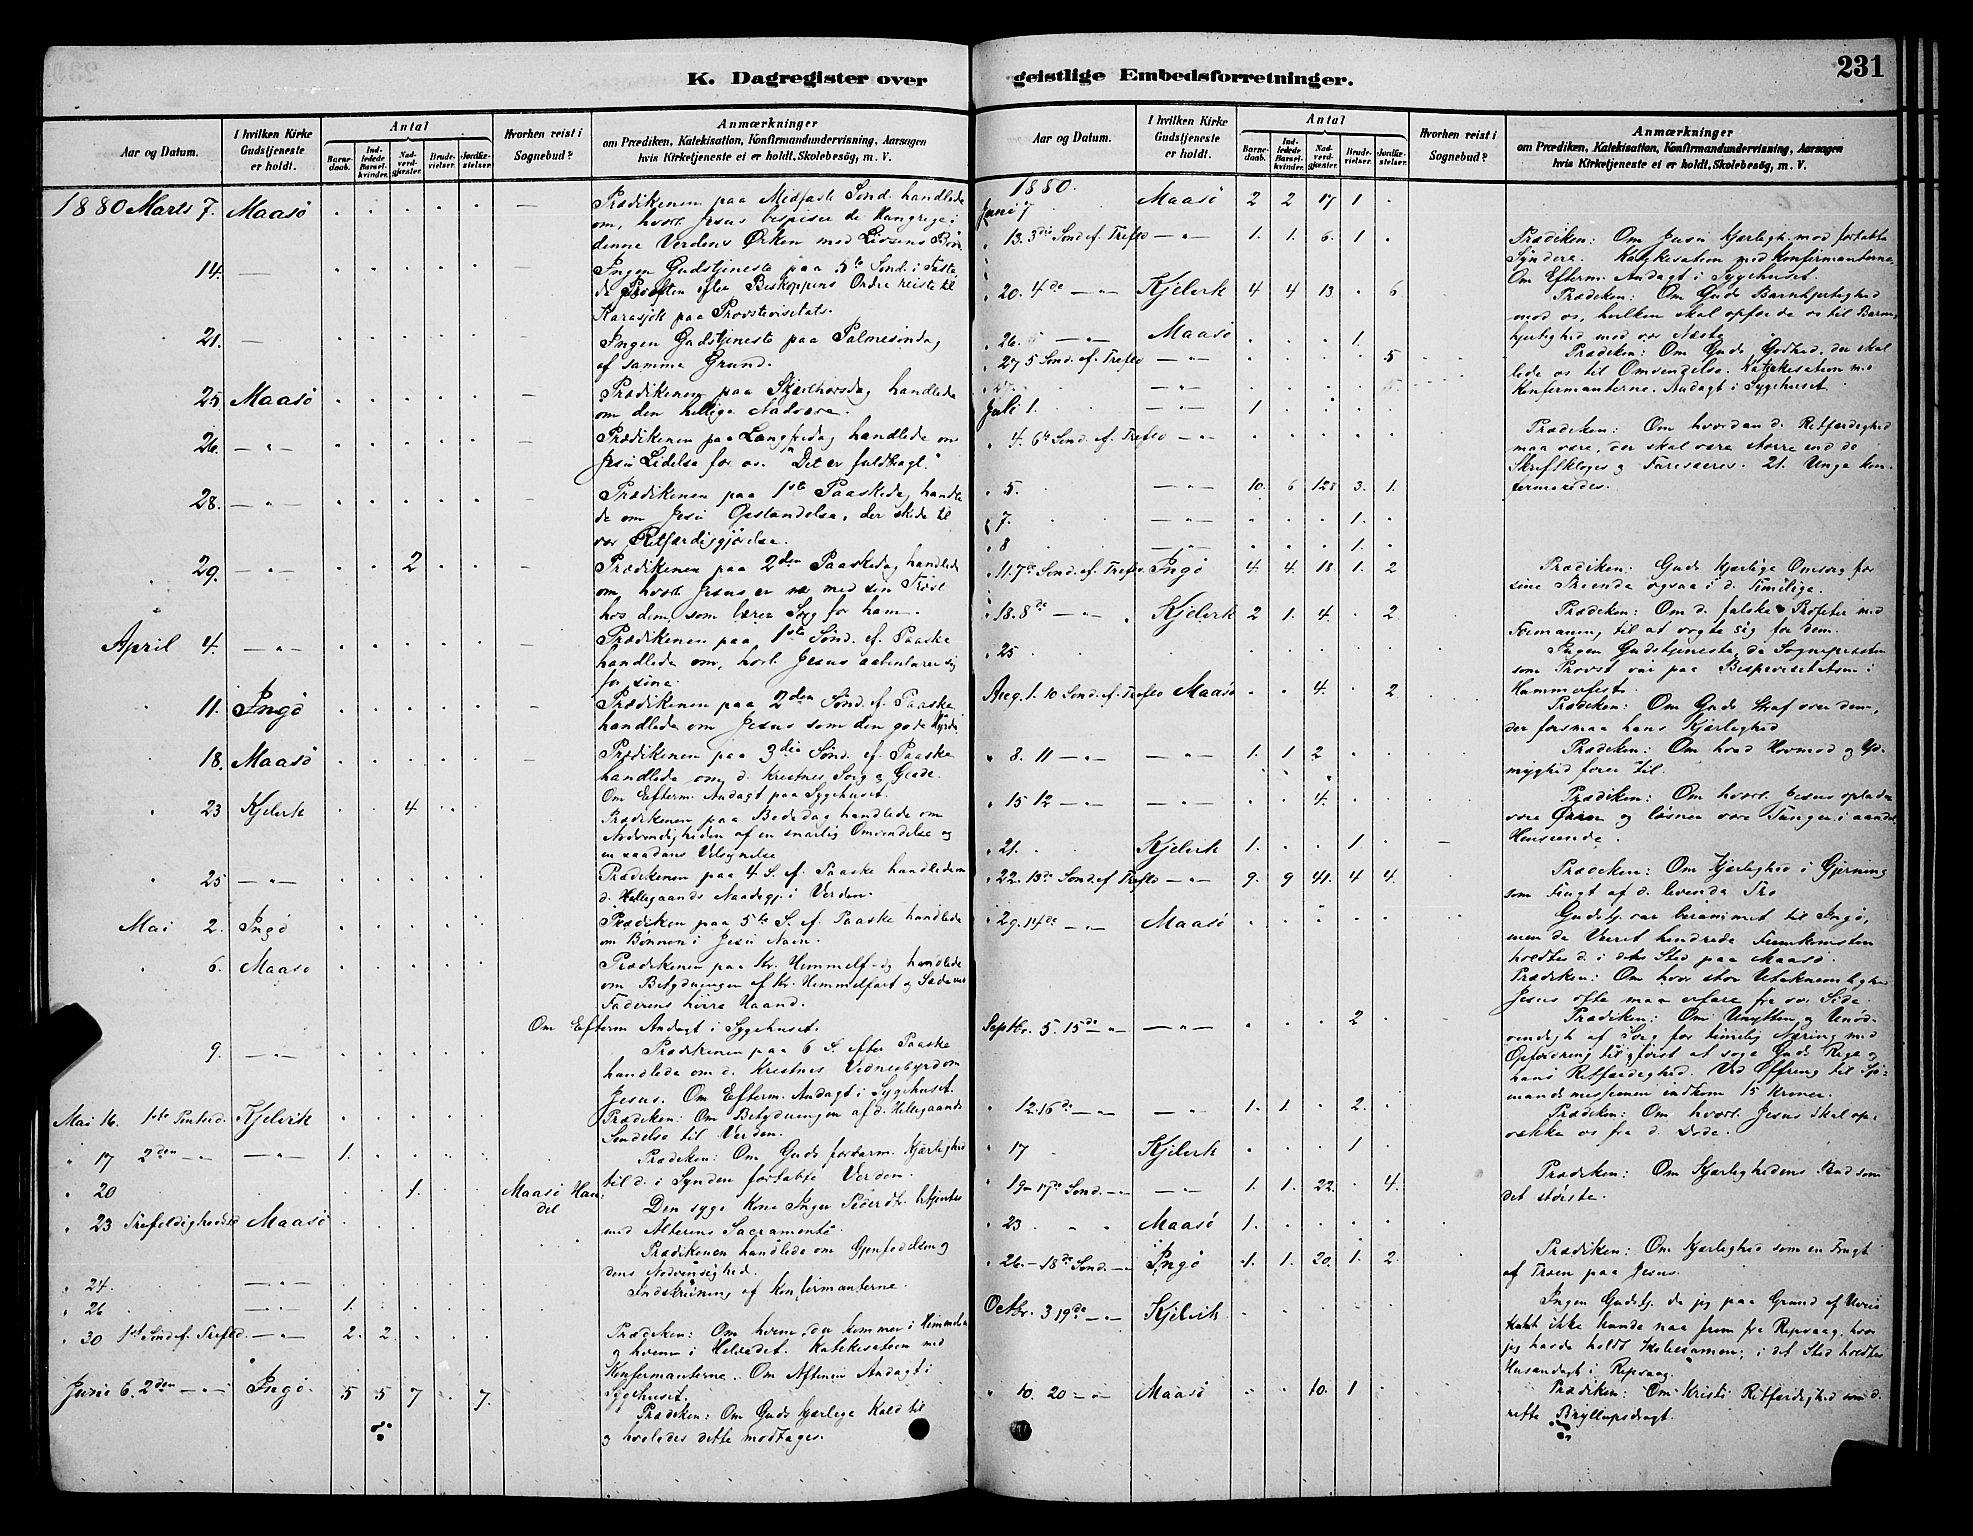 K. Dagregister over
Aar og Datum.
I hvilken Kirke Gudstjeneste er holdt.
Antal
Barnedaab.
Indledede Barselkvinder.
Nadverdgjæster.
Brudevielser.
Jordfæstelser.
Hvorhen reist i Sognebud?
Anmærkninger
om Prædiken, Katekisation, Konfirmandundervisning, Aarsagen
hvis Kirketjeneste ei er holdt, Skolebesøg, m. V.
1880 Marts 7. Maasø . . . . . — Prædikenen paa Midfaste Sønd. handlede
om, hvorl. Jesus bespiser de Hungrige i
denne Verdens Ørken med Livsens Brød
14. — . . . . . — Ingen Gudstjeneste paa 5te Sønd. i Faste,
da Provsten efter Biskoppens Ordre reiste til
Karasjok paa Provstevisitats.
21. — . . . . . — Ingen Gudstjeneste paa Palmesøndag
af samme Grund.
25 Maasø . . . . . — Prædikenen paa Skjærthorsdag handlede
om den hellige Nadvere.
26. — " — . . . . . — Prædikenen paa Langfredag handlede om
Jesu Lidelse for os. "Det er fuldbragt."
28. — " — . . . . . — Prædikenen paa 1ste Paaskedag handle
de om Jesu Opstandelse, der skede til
vor Retfærdiggjørelse.
29. — " — . . 2 . . — Prædikenen paa 2den Paaskedag handlede
om, hvorl. Jesus er nær med sin Trøst
hos dem, som bærer Sorg for ham.
April 4. — " — . . . . . — Prædikenen paa 1ste Sønd. ef. Paaske
handlede om, hvorl. Jesus aabenbarer sig
for sine.
" 11. Ingø . . . . . — Prædikenen paa 2den Sønd. ef. Paaske
handlede om Jesus som den gode Hyrde
" 18. Maasø . . . . . — Prædikenen paa 3die Sønd. ef. Paaske
handlede om d. Kristnes Sorg og Glæde.
Om Efterm. Andagt paa Sygehuset.
" 23 Kjelvik . . 4 . . Prædikenen paa Bededag handlede om
Nødvendigheden af en snarlig Omvendelse og
en saadans Velsignelse
" 25 — " — . . . . . Prædikenen paa 4 S. ef. Paaske handlede om
d. Helligaands Naadegj. i Verden.
Mai 2. Ingø . . . . . Prædiken paa 5te S. ef. Paaske handlede
om Bønnen i Jesu Navn.
" 6. Maasø . . . . . Prædikenen paa Kr. Himmelf-dg handlede
om Betydningen af Kr. Himmelfart og Sæde ved
Faderens høire Haand.
Om Efterm Andagt i Sygehuset.
9. — " — . . . . . Prædikenen paa 6 S. efter Paaske
handlede om d. Kristnes Vidnesbyrd om
Jesus. Om Efterm. Andagt i Sygehuset.
Mai 16. 1ste Pintsed. Kjelvik . . . . . Prædiken: Om Betydningen af d. Helligaands
Sendelse til Verden.
" 17 2den — " — — " — 1. . . . . Prædiken: Om Guds forbarm. Kjærlighed
til d. i Synden fortabte Verden.
" 20 . . 1. . . Maasø Handel Den syge Kone Inger Pedersdtr. betjentes
med Alterens Sacramente.
" 23 Trefoldigheds Maasø . . . . . Prædikenen handlede om Gjenfødelsen og
dens Nødvendighed.
" 24. — " — Indskrivning af Konfirmanterne.
" 26 — " — 1. . . . .
" 30 1st Sønd ef. Trefold. — " — 2. 2. . . . Prædiken: Om hvem, der kommer i Himmelen
og hvem i Helvedet. Katekisation med
Konfirmanterne. Om Aftenen Andagt i
Sygehuset.
Juni 6. 2den — " — Ingø. 5 5 7 . 7. Prædiken: Om Guds kjærlige Kald til
og hvoledes dette modtages.
geistlige Embedsforretninger.
231
Aar og Datum.
I hvilken Kirke Gudstjeneste er holdt.
Antal
Barnedaab.
Indledede Barselkvinder.
Nadverdgjæster.
Brudevielser.
Jordfæstelser.
Hvorhen reist i Sognebud?
Anmærkninger
om Prædiken, Katekisation, Konfirmandundervisning, Aarsagen
hvis Kirketjeneste ei er holdt, Skolebesøg, m. V.
1880.
Juni 7 Maasø 2 2 17 1 .
" 13. 3die Sønd. ef. Trefld — " — 1. 1. 6. 1 . Prædiken: Om Jesu Kjærligh. mod fortabte
Syndere. Katekisation med Konfirmanterne,
Om Efterm. Andagt i Sygehuset.
" 20. 4de — " — Kjelvik 4 4 13 . 6 Prædiken: Om Guds Barmhjertighed
mod os, hvilken skal opfordre os til Barm
hjertighed mod vor Næste
" 26. — " — Maasø . . . 1. .
" 27 5 Sønd. ef. Trefld — " — . . . . 5 Prædiken: Om Guds Godhed, der skal
lede os til Omvendelse. Katekisation med
Konfirmanterne. Andagt i Sygehuset
Juli 1. — " — 1 . . . .
" 4. 6te Sønd. ef. Trefld — " — . . . . . Prædiken: Om hvordan d. Retfærdighed
maa være, der skal være større end de
Skriftkloges og Farisæeres. 21. Unge kon
firmeredes.
" 5. — " — 10. 6 3. 1.
" 7. — " — . . . 1. .
" 8 — " — . . . 1. .
" 11. 7de Sønd. ef. Trefld. Ingø 4. 4. 18 1. 2 Prædiken: Guds kjærlige Omsorg for
sine Troende ogsaa i d. Timelige.
" 18. 8de — " — Kjelvik 2 1. 4. . 2. Prædiken: Om d. falske Profeter med
Formaning til at vogte sig for dem.
" 25 . . . . . Ingen Gudstjeneste, da Sognepræsten
som Provst var paa Bispevisitatsen i
Hammerfest.
Aug. 1. 10 Sønd. ef. Trefld Maasø . . 4. . 2. Prædiken: Om Guds Straf over dem,
der forsmaa hans Kjærlighed
" 8. 11 — " — — " — 1. 1 2 . . Prædiken: Om hvad Hovmod og Yd-
myghed fører til.
" 15 12 — " — — " — . . 4. . . Prædiken: Om hvorl. Jesus oplader
vore Øren og løsner vore Tunger i aandel.
Henseende.
" 21. Kjelvik 1. . . 1. . —
" 22. 13de Sønd. ef Trefld — " — 9. 9 41. 4 4. Prædiken: Om Kjærlighed i Gjerning
som Frugt af d. levende Tro
" 29. 14de — " — Maasø . . . . . Gudstj. var berammet til Ingø,
men da Veiret hindrede Fremkomsten
holdtes d. i dets Sted paa Maasø.
Prædiken: Om hvor stor Utaknemlighed
Jesus ofte maa erfare fra vor Side.
Septbr. 5. 15de — " — — " — . . . 2 . Prædiken: Om Unytten og Unød-
vendigh. af Sorg for timelig Næring med
Opfordring til først at søge Guds Rige og
hans Retfærdighed. Ved Offring til Sjø-
mandsmissionen indkom 15 Kroner.
" 12. 16de — " — — " — 1. 1. . 2. . Prædiken: Om hvorl. Jesus skal op-
vække os fra d. Døde.
" 17 Kjelvik . . . 1 .
" 19 — 17de Sønd. — " — — " — 1. 1. 22. . 4. Prædiken: Om Kjærlighedens Bud som
det største.
" 23 " " Maasø 1. . . . .
" 26. — 18de Sønd. — " — Ingø 1. 1. 20. 1. 2. Prædiken: Om Kjærlighed som en Frugt
af Troen paa Jesus.
Octbr. 3 19de — " — Kjelvik . . . . . Ingen Gudstj. da jeg paa Grund af Veiret
ikke kunde naa frem fra Repvaag, hvor
jeg havde holdt Skoleexamen; i det Sted holdtes
Husandagt i Repvaag
" 10. 20 — " — Maasø . . 10. 1 . Prædiken: Om Kristi Retfærdighed som d.
rette Bryllupsdragt.